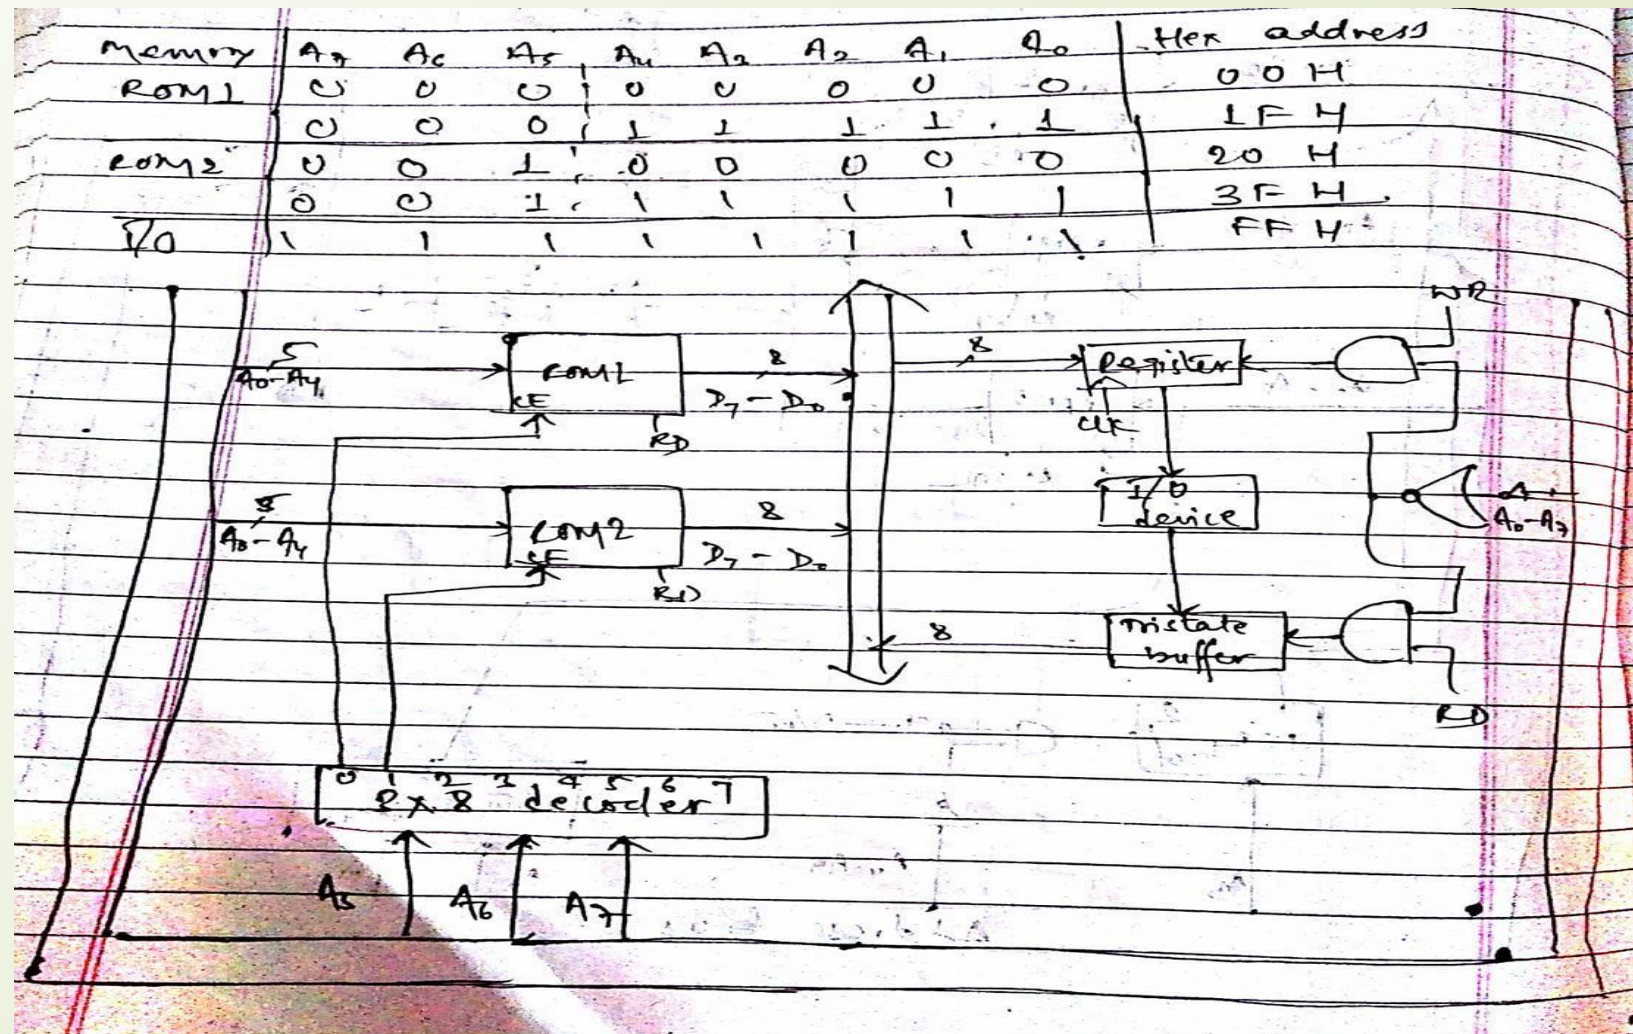 Memory A7 A6 A5 A4 A3 A2 A1 A0 Hex address
ROM1 0 0 0 0 0 0 0 0 00H
0 0 0 1 1 1 1 1 1FH
ROM2 0 0 1 0 0 0 0 0 20H
0 0 1 1 1 1 1 1 3FH
I/O 1 1 1 1 1 1 1 1 FFH
WR
5
A0-A4
ROM1
CE
RD
8
D7-D0
8
Register
CLK
5
A0-A4
ROM2
CE
RD
8
D7-D0
I/O
device
A0-A7
8
Tristate
buffer
RD
0 1 2 3 4 5 6 7
8 decoder
A5 A6 A7